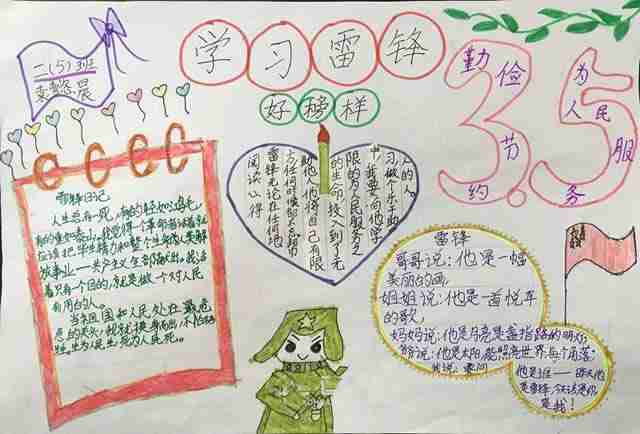 二(5)班
学习雷锋
好榜样
勤俭节约
3.5
为人民服务
雷锋日记
人生总有一死,有的轻如鸿毛,
有的重如泰山。我觉得一个革命者活着就
应该把毕生精力和整个生命为人类解
放事业——共产主义全部献出。我活
着只有一个目的,就是做一个对人民
有用的人。
当祖国和人民处在最危
急的关头,我就挺身而出,不怕牺
牲。生为人民生,死为人民死。
阅读心得
雷锋无论在任何地
方任何时候都不忘帮
助他人,他将自己有限
的生命投入到了无
限的为人民服务之
中,我要向他学
习,做个乐于助
人的人。
雷锋
哥哥说:他是一幅
美丽的画,
姐姐说:他是一首悦耳
的歌,
妈妈说:他是月亮是盏指路的明灯,
爷爷说:他是太阳,能照亮世界每个角落。
我说:
他是谁——昨天他
是雷锋,今天该是你
是我!